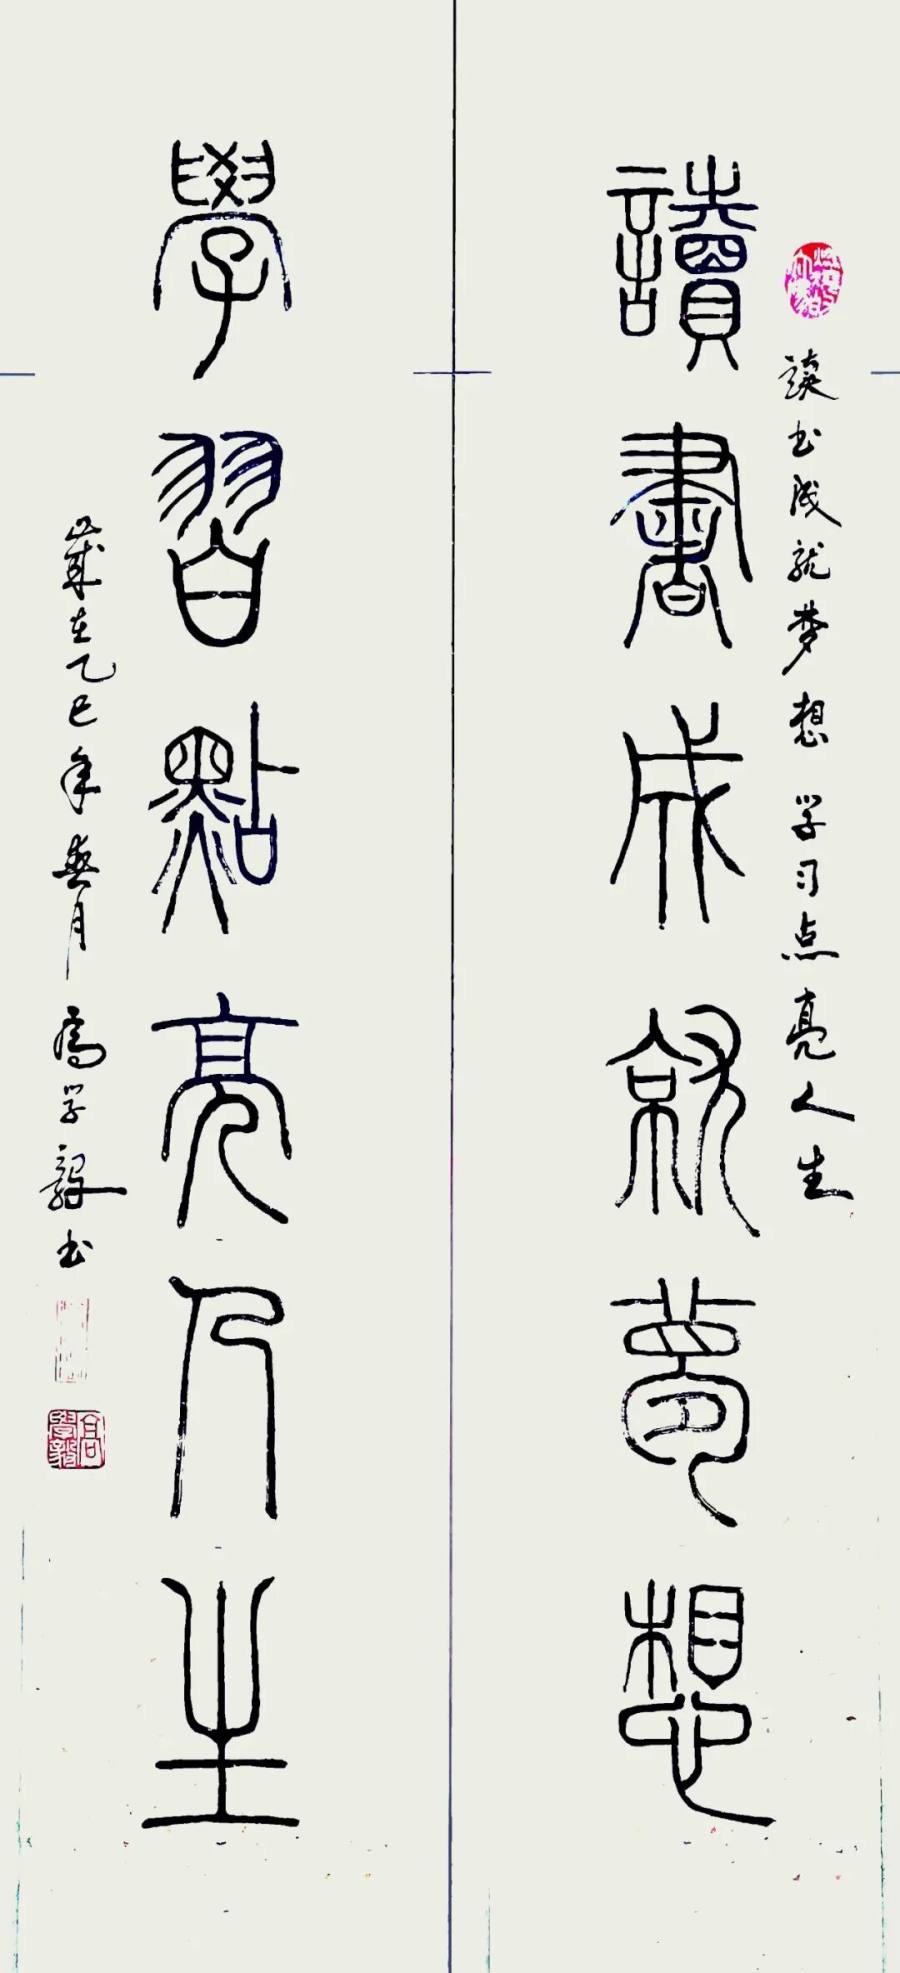 读书成就梦想 学习点亮人生
讀書成就夢想
學習點亮人生
岁在乙巳年春月高学毅书
高學毅